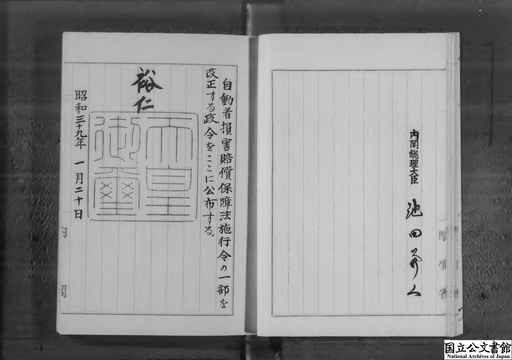 自動車損害賠償保障法施行令の一部を
改正する政令をここに公布する。
裕仁
天皇
御璽
昭和三十九年 一月二十日
内閣
内閣総理大臣 池田勇人
国立公文書館
National Archives of Japan